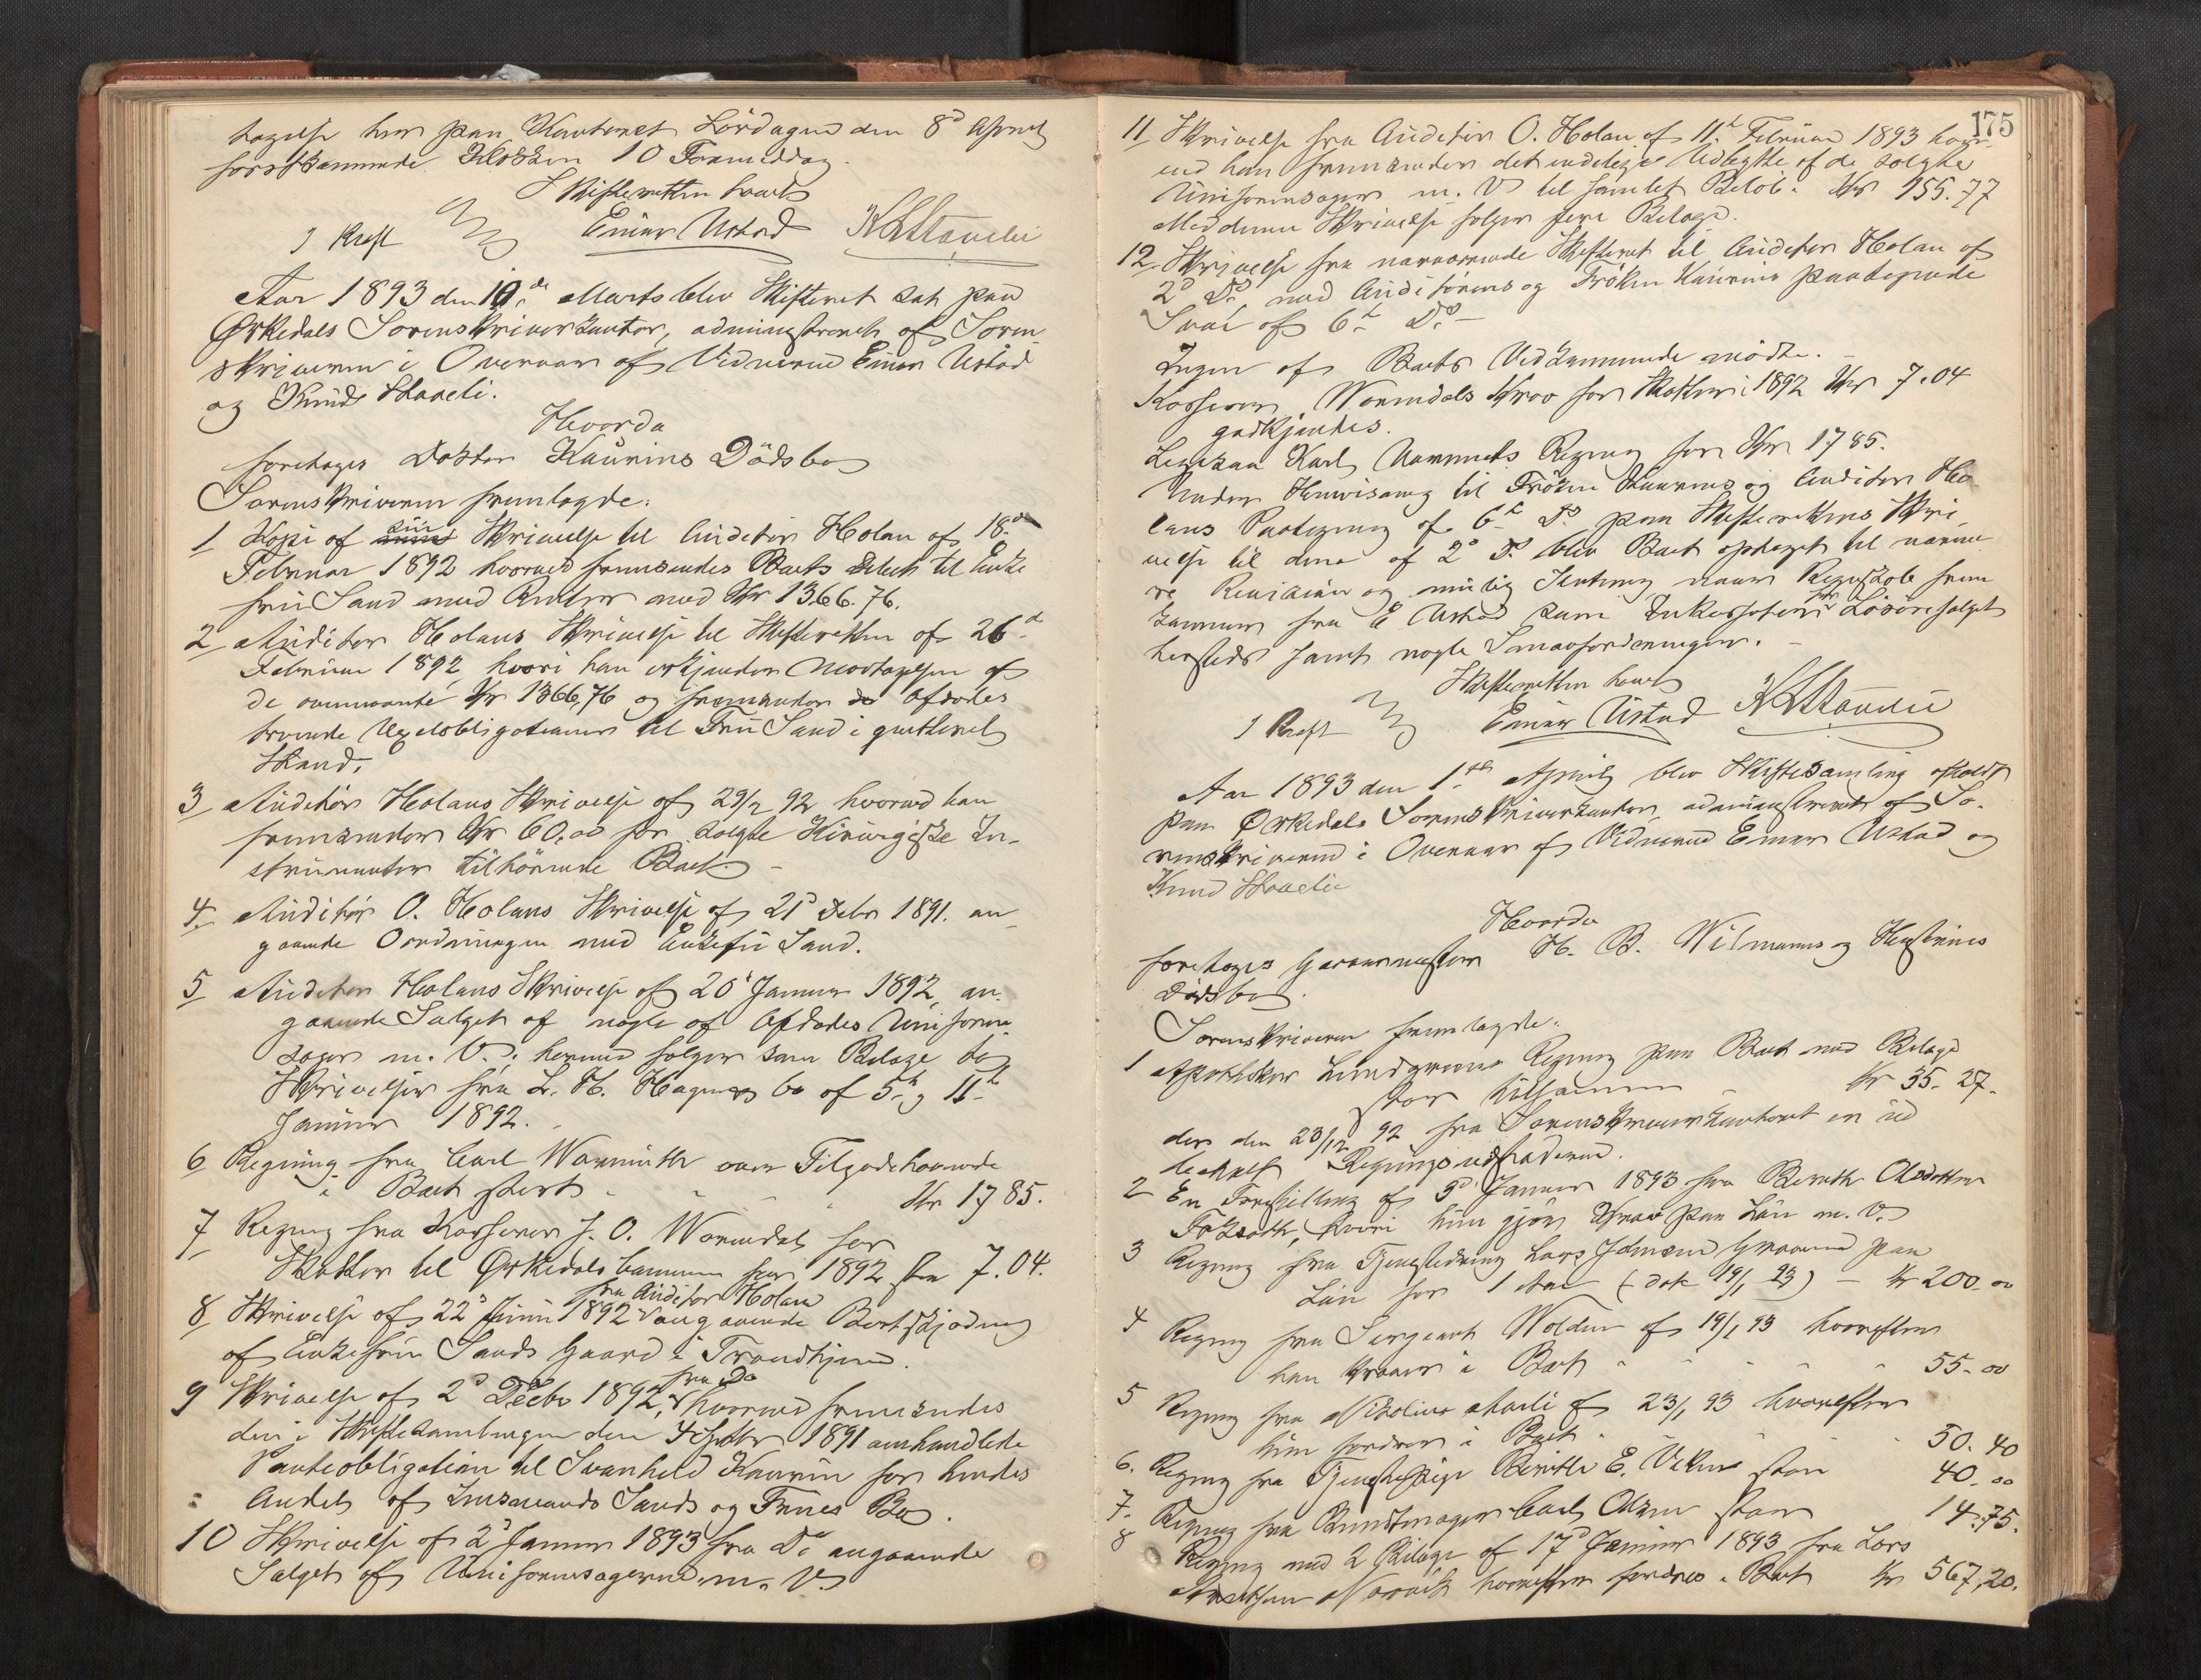 tagelse her paa Kontoret Lørdagen den 8d April
førstkommende Klokken 10 Formiddag.
Skifteretten hævet
J Kreft Einar Ustad K L Staveli
Aar 1893 den 10de Marts blev Skifteret sat paa
Ørkedals Sorenskriverkontor, administreret af Soren-
skriveren i Overvær af Vidnerne Einar Ustad
og Knud Staveli.
Hvorda
foretages Doktor Kaurins Dödsbo
Sorenskriveren fremlagde:
1 Kopi af sin Skrivelse til Auditør Holan af 18de
Februar 1892 hvorved fremsendes Boets Debet til Enke
fru Sand med Renter med Kr 1366.76.
2 Auditør Holans Skrivelse til Skifteretten af 26d
Februar 1892 hvori han erkjender Modtagelsen af
de ovennævnte Kr 1366,76 og fremsender Afdødes
tvende Vexelobligationer til Fru Sand i qvitteret
Stand.
3 Auditør Holans Skrivelse af 29/2 92 hvorved han
fremsender Kr 60,00 for solgte Kirurgiske In-
strumenter tilhörende Boet –
4. Auditør O. Holans Skrivelse af 21d Debr 1891. an-
gaaende Ordningen med Enkefru Sand.
5 Auditør Holans Skrivelse af 20d Januar 1892, an-
gaaende Salget af nogle af Afdødes Uniforms
sager m. V.; hermed følger som Bilage to
Skrivelser fra L. H. Hagens bo af 5t og 11t
Januar 1892.
6 Regning fra Carl Warmuth over Tilgodehavende
i Boet stort Kr 17 85.
7 Regning fra Kasserer J. O. Wormdal for
Skatter til Ørkedals Commune for 1892 stor 7.04.
fra Auditør Holan
8 Skrivelse af 22d Juni 1892 angaaende Bortskjödning
af Enkefru Sands Gaard i Trondhjem.
fra Do
9 Skrivelse af 2d Decbr 1892, hvorved fremsendes
den i Skiftesamlingen den 4 Septbr 1891 omhandlede
Panteobligation til Svanhild Kaurin for hendes
Andel af Insmands Sands og Frues Bo.
10 Skrivelse af 2d Januar 1893 fra Do angaaende
Salget af Uniformssagerne m. V.
175
11 Skrivelse fra Auditør O. Holan af 11t Februar 1893 hvor-
ved han fremsender det endelige Udbytte af de solgte
Uniformssager m. V. til samlet Beløb. Kr 155.77
Med denne Skrivelse følger flere Bilage.
12. Skrivelse fra nærværende Skifteret til Auditør Holan af
2d Ds. med Auditørens og Frøken Kaurins paategnede
Svar af 6t Ds –
Ingen af Boets Vedkommende mødte. –
Kasserer Wormdals Krav for Skatter i 1892 Kr 7.04
godkjendes.
Ligesaa Karl Warmuths Regning for Kr 17 85.
Under Henvisning til Frøken Kaurins og Auditør Ho-
lans Paategning af 6t Ds paa Skifterettens Skri-
velse til dem af 2d Ds blev Boet optaget til nærme-
re Revision og mulig Slutning naar Regnskab frem
kommer fra E Ustad som Inkassator for Løsøresalget
hersteds samt nogle Smaafordringer. –
Skifteretten hævet
J Kreft Einar Ustad K L Staveli
Aar 1893 den 1ste April blev Skiftesamling afholdt
paa Ørkedals Sorenskriverkontor, administreret af So-
renskriveren i Overvær af Vidnerne Einar Ustad og
Knud Staveli
Hvorda
foretages Garvermester H. B. Wilmanns og Hustrues
Dödsbo.
Sorenskriveren fremlagde:
1 Apotheker Lundgreens Regning paa Boet med Bilage
stor tilsammen Kr 35. 27.
der den 23/12 92 fra Sorenskriverkontoret er ud
Regnings udstederen.
2 En Fremstilling af 3d Januar 1893 fra Bereth Olsdatter
hvori hun gjør Krav paa Lön m. V.
3 Regning fra Tjenestedreng Lars Johnsen paa
Lön for 1 Aar (dat 19/1 93) – Kr 200.00
4 Regning fra Sergeant Wolden af 19/1 93 hvorefter
han kræver i Boet 55.00
5 Regning fra Nikoline Moeli af 23/1 93 hvorefter
hun fordrer i Boet 50. 40
6. Regning fra Tjenestepige Berethe E. stor 40.00
7. Regning fra Buntmager Carl Olsen stor 14.75.
8 Regning med 2 Bilage af 17d Januar 1893 fra Lars
hvorefter fordres i Boet Kr 567,20.